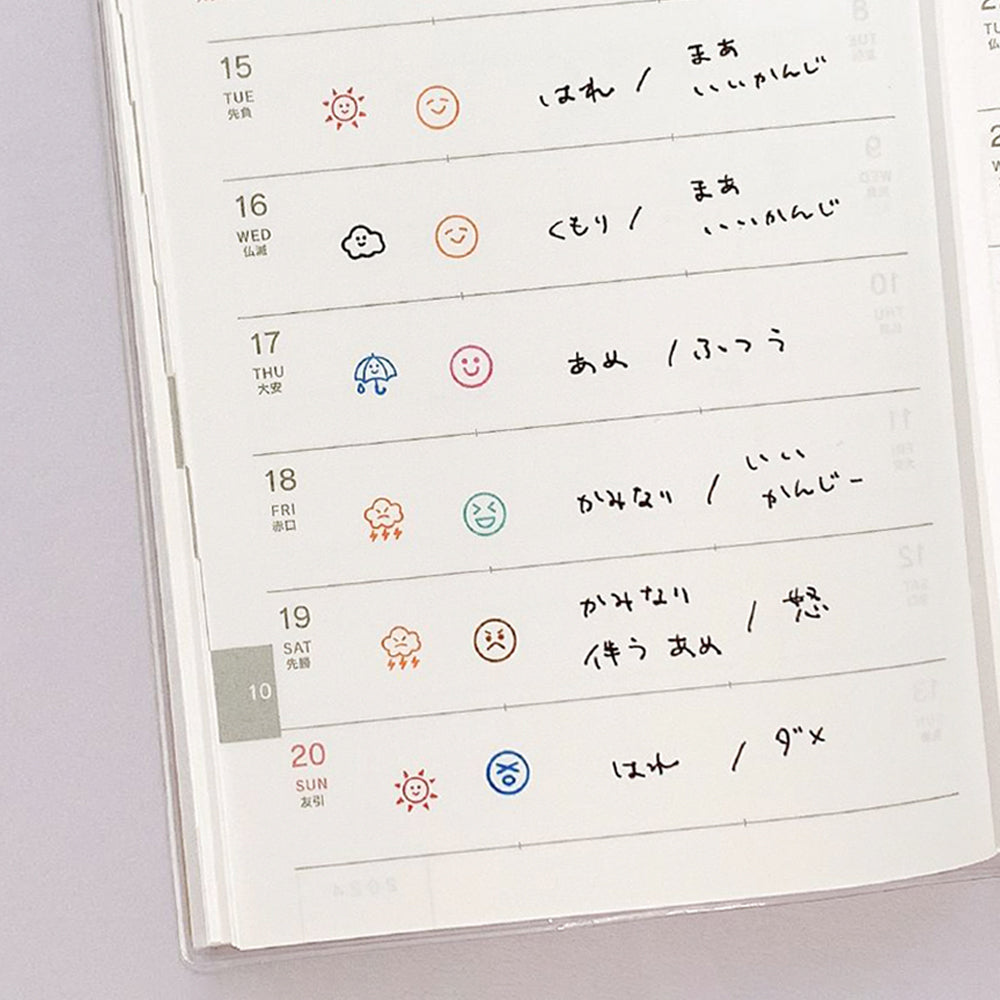 15
TUE
先負
はれ / まあ
いいかんじ
16
WED
仏滅
くもり / まあ
いいかんじ
17
THU
大安
あめ / ふつう
18
FRI
赤口
かみなり / いい
かんじー
19
SAT
先勝
かみなり
伴うあめ / 怒
10
20
SUN
友引
はれ / ダメ